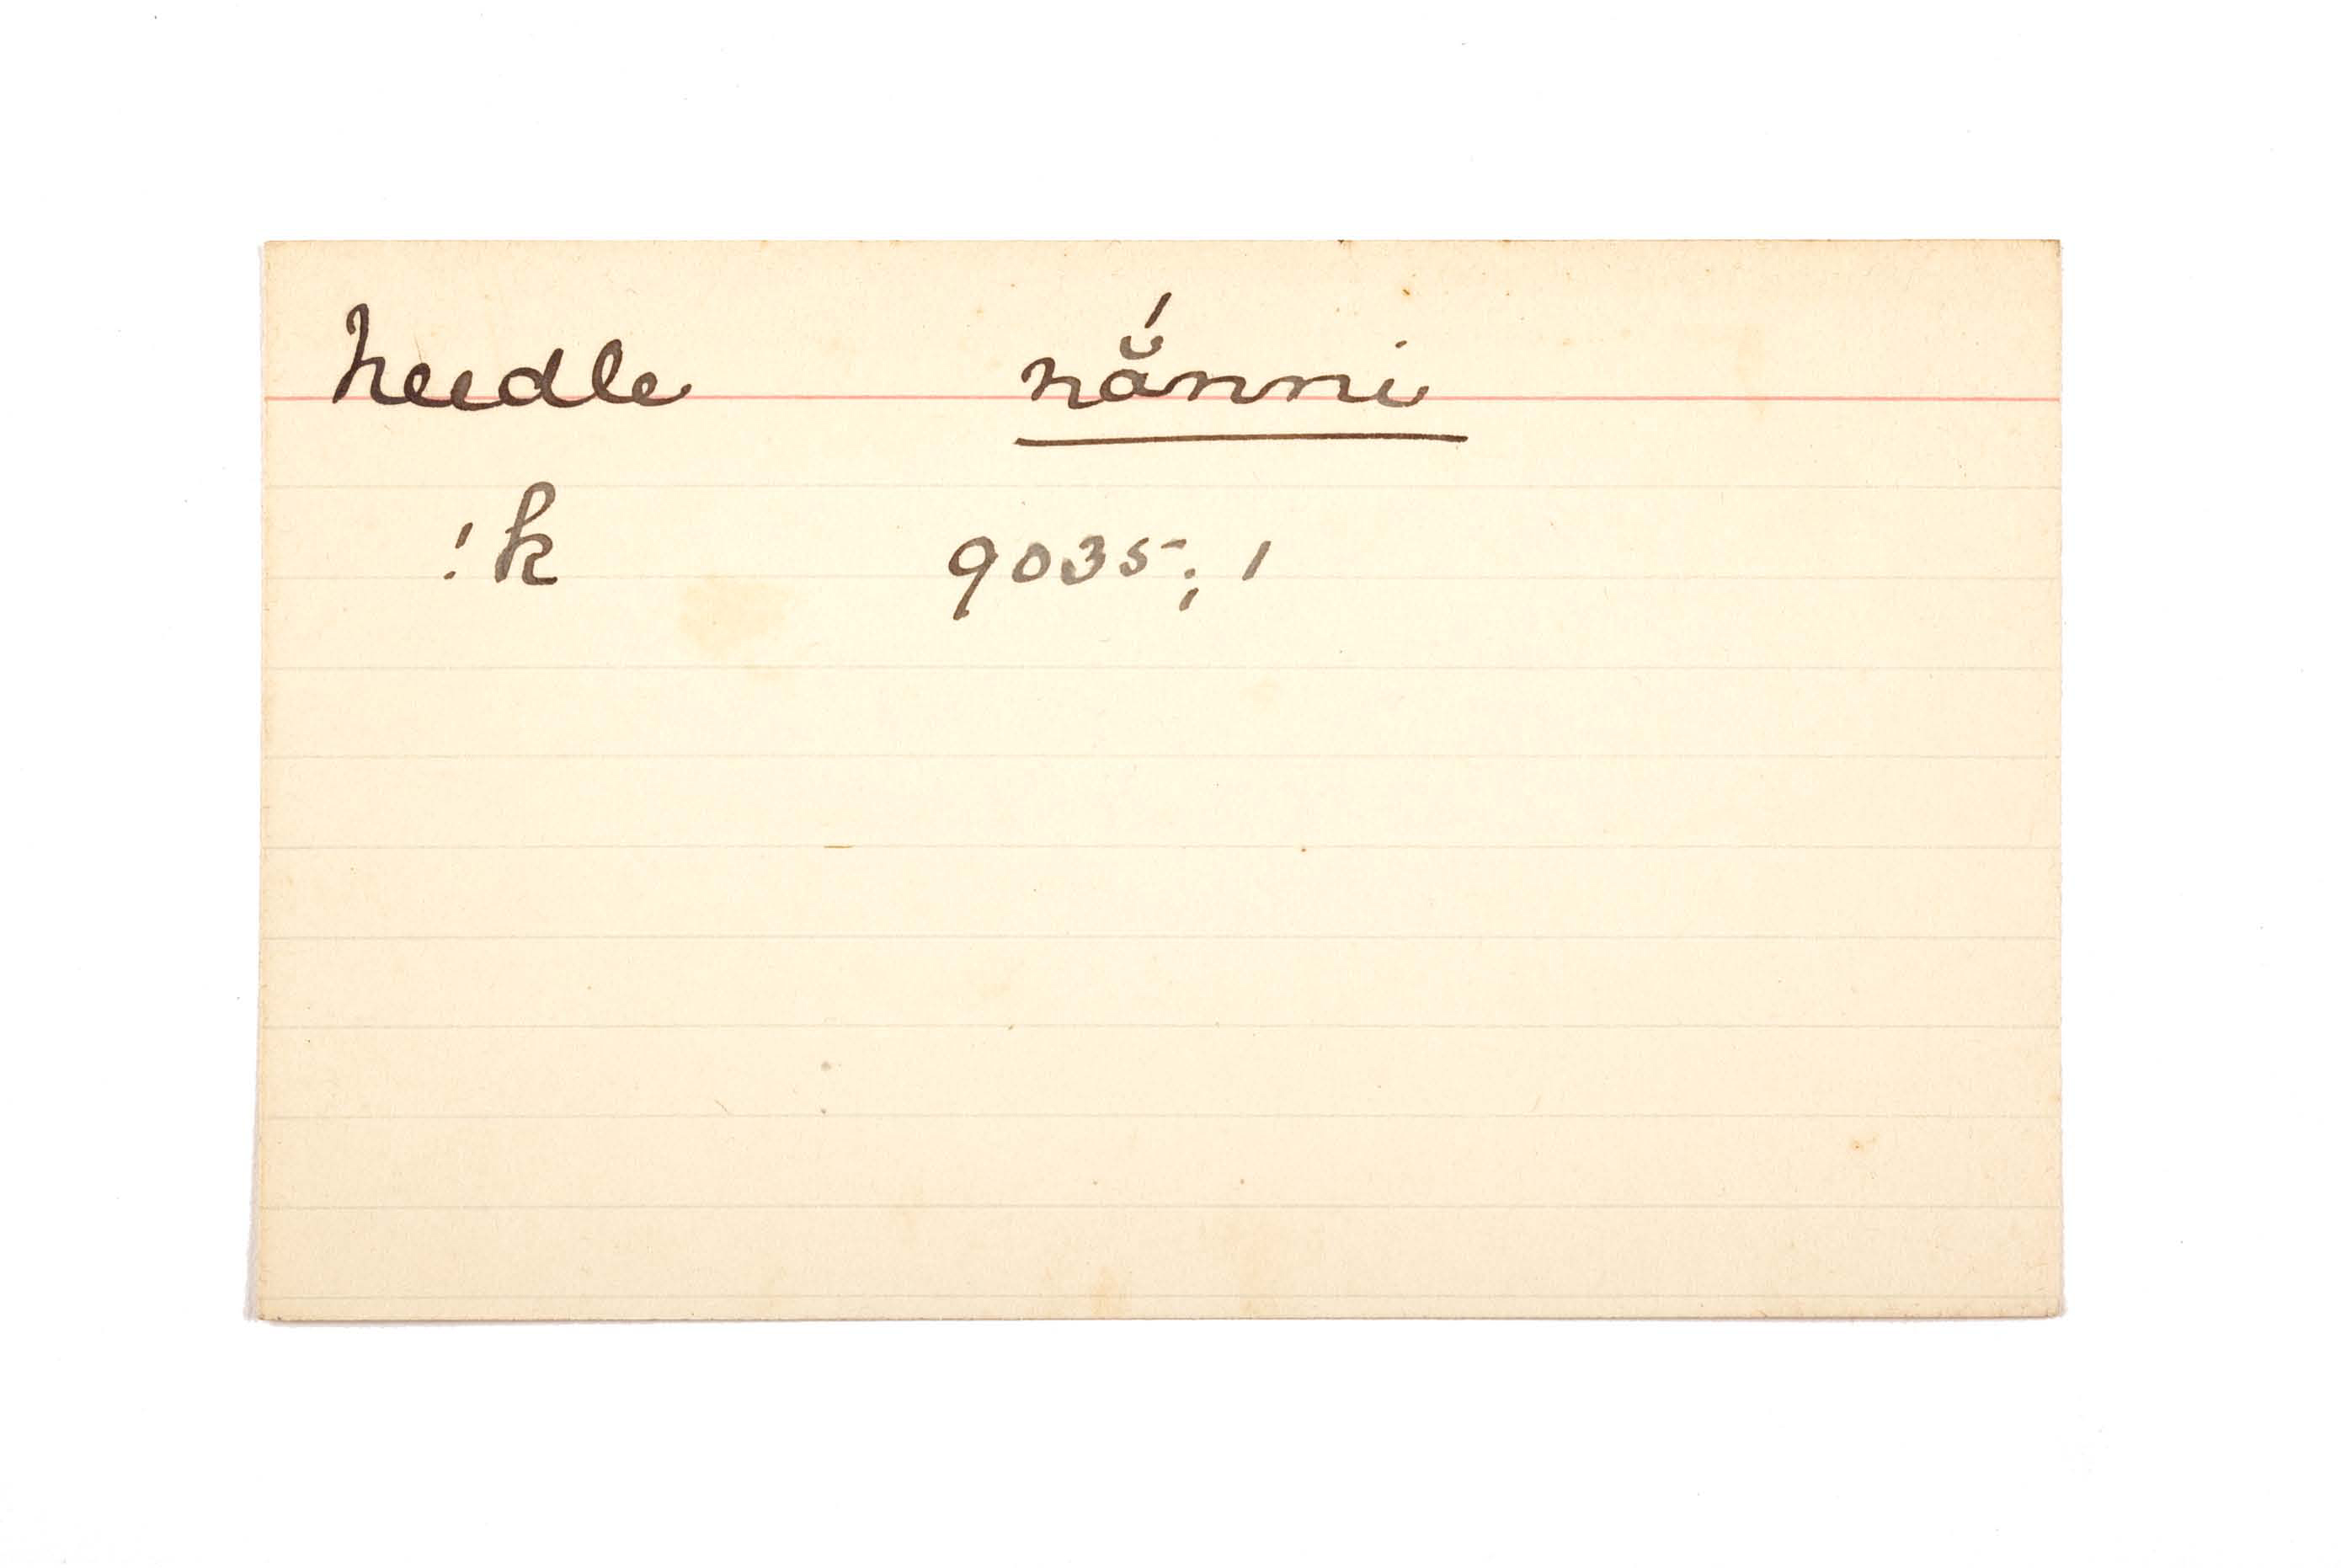 needle nắnni
!k 9035; 1